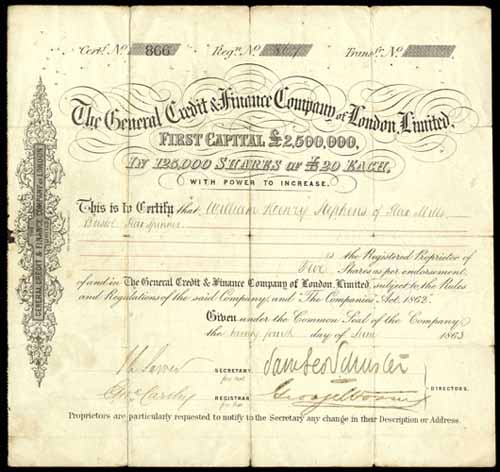 Certe. No. 866 Regd. No. 867 Transfr. No.
The General Credit & Finance Company of London, Limited.
FIRST CAPITAL £2,500,000,
IN 125,000 SHARES OF £20 EACH,
WITH POWER TO INCREASE.
This is to Certify that William Henry Stephens of Flax Mills
Bristol Flax Spinner
is the Registered Proprietor of
Five Shares as per endorsement
of and in The General Credit & Finance Company of London, Limited, subject to the Rules
and Regulations of the said Company, and "The Companies' Act, 1862."
Given under the Common Seal of the Company
the twenty fourth day of June 1863
SECRETARY
REGISTRAR
DIRECTORS.
Proprietors are particularly requested to notify to the Secretary any change in their Description or Address.
GENERAL CREDIT & FINANCE COMPANY OF LONDON